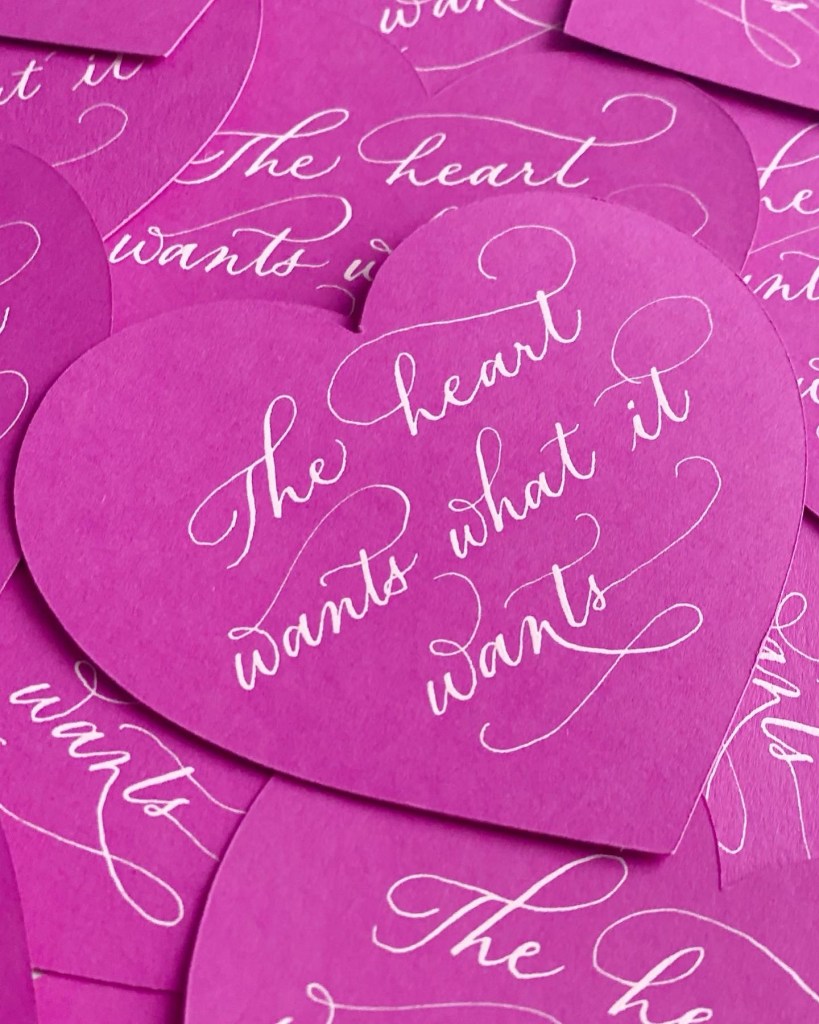 wan
at it
The heart
wants w
he
The heart
wants what it
wants
ants
wants
wants
The he